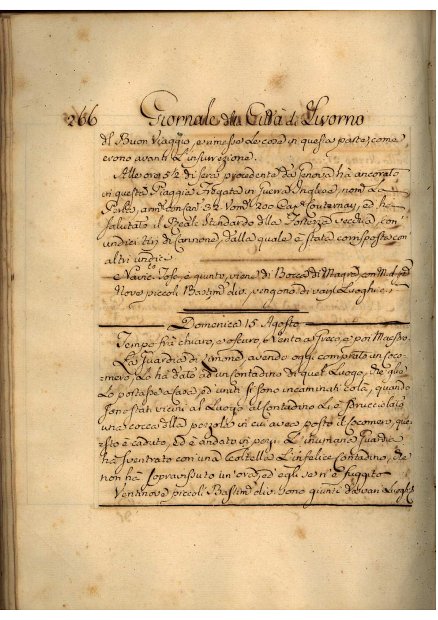 266 Giornale della Città di Livorno
del Buon Viaggio, e rimesse le cose in questa parte, come
erono avanti l'insurrezione.
Alle ore 5½ di sera procedente da Genova hà ancorato
in questa Piaggia Fregata in guerra Inglese nom.a La
Perla, con 32 200 Cap.o Courtenay, ed hà
salutato il Reale Stendardo della Fortezza Vecchia con
undici tiri di cannone, dalla quale è stata corrisposta con
altri undici.
e giunto, viene di Bocca di Magra, con
Nove piccoli Bastim.ti div. vengono di varj Luoghi
Domenica 15 Agosto
Tempo frà chiaro, e oscuro, e Vento a Greco, e poi Maestro.
La Guardia di avendo oggi comprato un coco-
mero, lo hà dato ad un contadino di quel Luogo, che
lo portasse a casa, ed uniti si sono incaminati colà, quando
sono stati vicini al Luogo al contadino li è sdrucciolato
una cocca della pezzola in cui aveva posto il cocomero, que-
sto è caduto, ed è andato in pezzi. L'inumana Guardia
hà sventrato con una coltella l'infelice contadino, che
non hà sopravissuto un'ora, ed egli se n'è fuggito
Ventinove piccoli Bastim.ti div. sono giunti da varj Luoghi